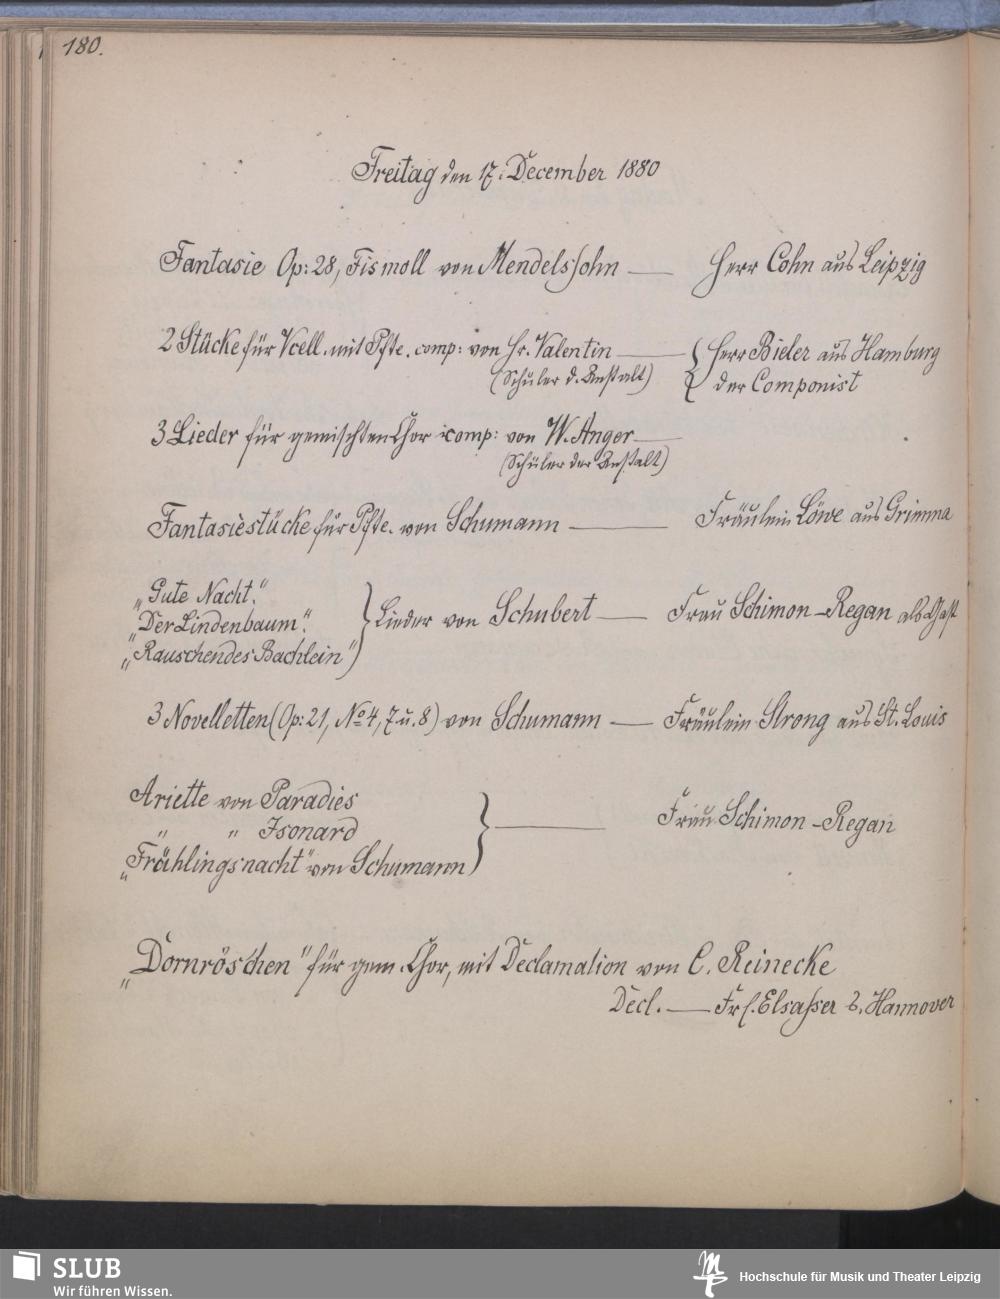 180.
Freitag den 17. December 1880
Fantasie Op: 28, Fis moll von Mendelssohn — Herr Cohn aus Leipzig
2 Stücke für Vcell. mit Pfte. comp: von Hr. Valentin — { Herr Bieler aus Hamburg
(Schüler d. Anstalt) der Componist
3 Lieder für gemischten Chor comp: von W. Anger —
(Schüler der Anstalt)
Fantasiestücke für Pfte. von Schumann — Fräulein Löwe aus Grimma
„Gute Nacht."
„Der Lindenbaum".
} Lieder von Schubert — Frau Schimon-Regan als Gast
„Rauschendes Bachlein")
3 Novelletten (Op: 21, No 4, 7 u. 8) von Schumann — Fräulein Strong aus St. Louis
Ariette von Paradies
" " Isonard
} — Frau Schimon-Regan
„Frühlingsnacht" von Schumann
„Dornröschen" für gem. Chor, mit Declamation von C. Reinecke
Decl. — Frl. Elsasser a. Hannover
SLUB
Wir führen Wissen.
Hochschule für Musik und Theater Leipzig